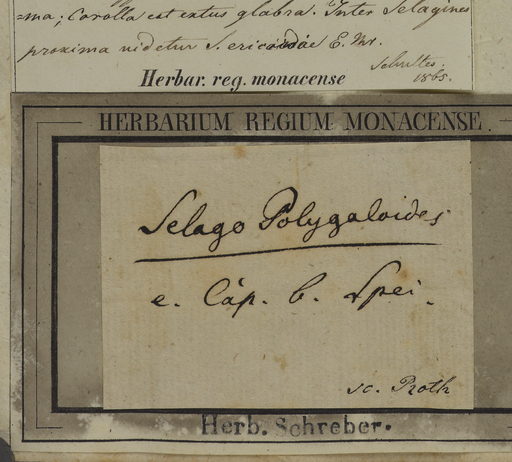 =ma; Corolla est extus glabra. Inter Selagines
proxima videtur S. ericoidae E. M.
Schultes.
1865.
Herbar. reg. monacense
HERBARIUM REGIUM MONACENSE
Selago Polygaloides
e. Cap. b. Spei.
sc. Roth
Herb. Schreber.